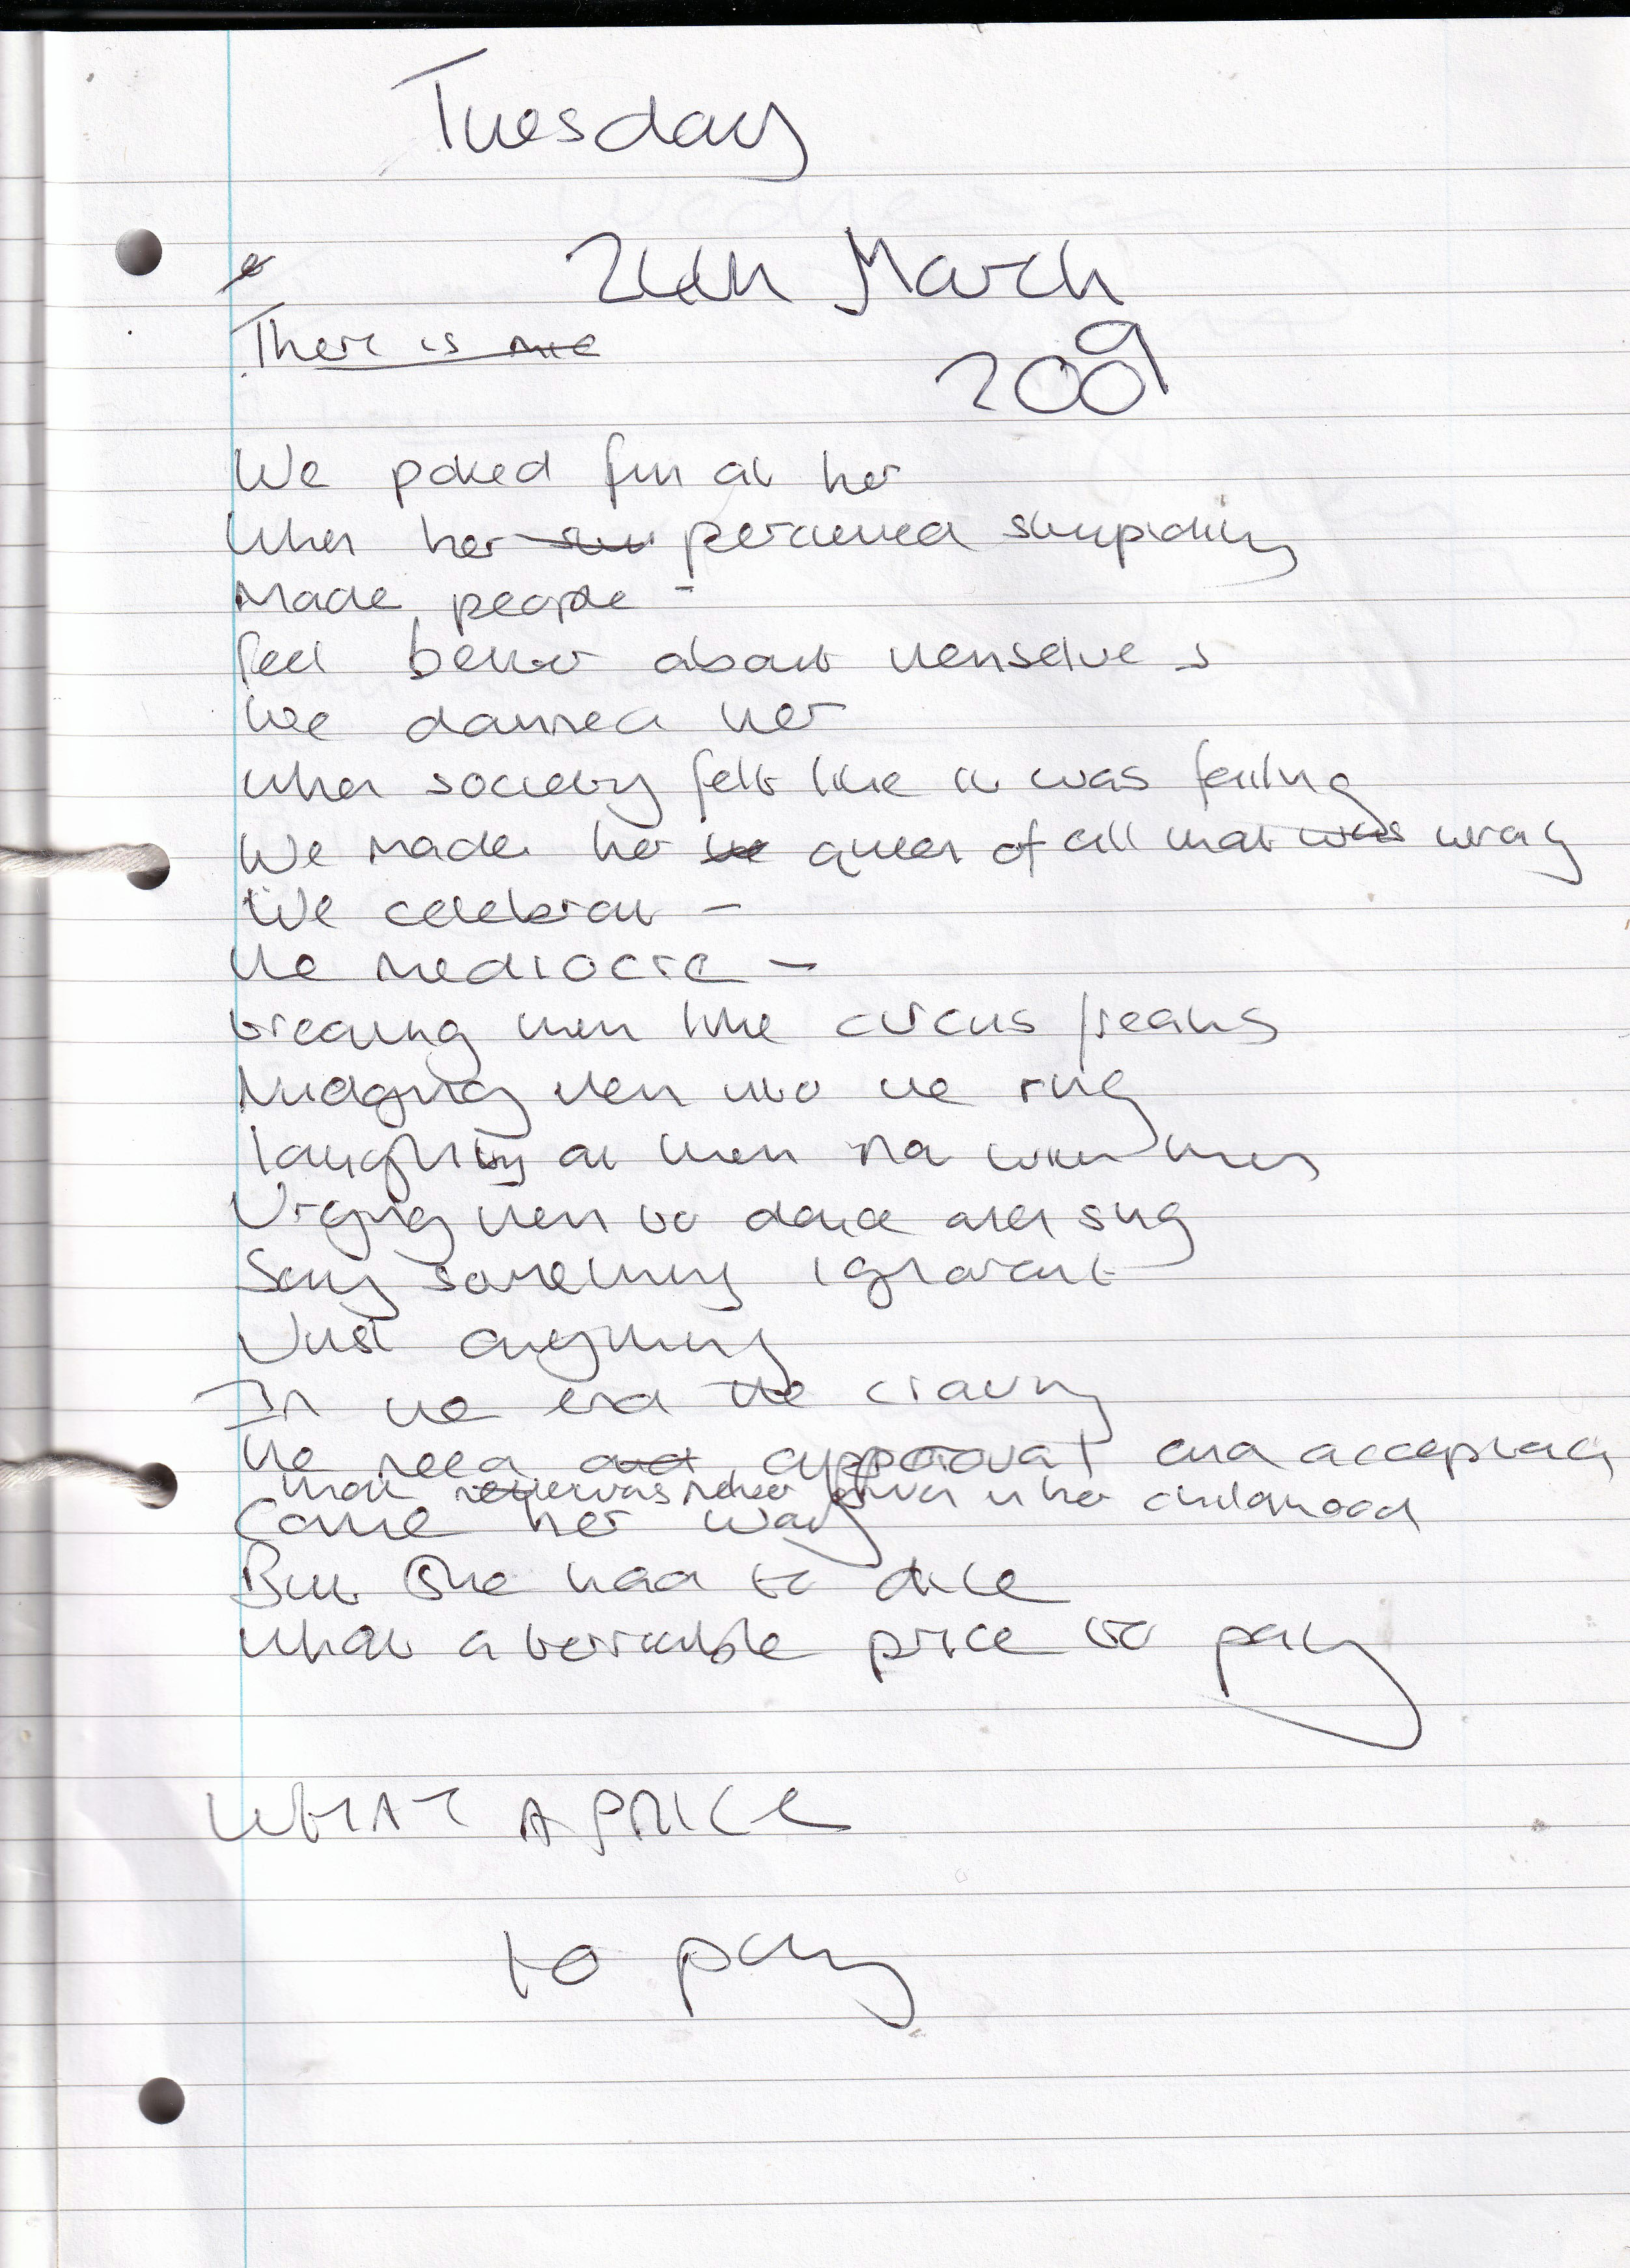 Tuesday
24th March
There is
2009
We poked fun at her
When her perceived stupidity
Made people -
feel better about themselves
We damned her
when society felt like it was failing
We made her queen of all that was wrong
We celebrate -
the mediocre -
treating them like circus freaks
Nudging them into the ring
laughing at them not with them
Urging them to dance and sing
Say something ignorant
Just anything
In the end the craving
the need approval and acceptance
that was never given in her childhood
Came her way
But She had to die
what a terrible price to pay
WHAT A PRICE
to pay